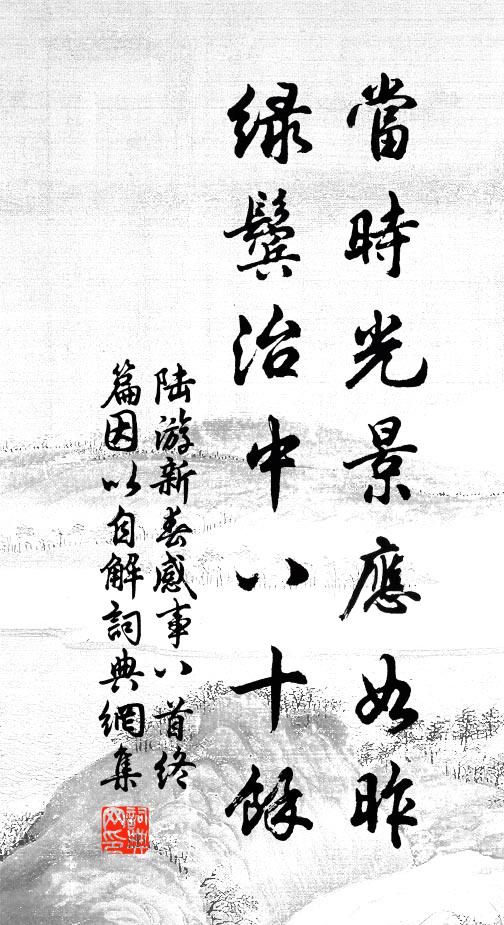 當時光景應如昨
緑鬢治中八十餘
陆游新春感事八首终
篇因以自解詞典網集
詞典网印